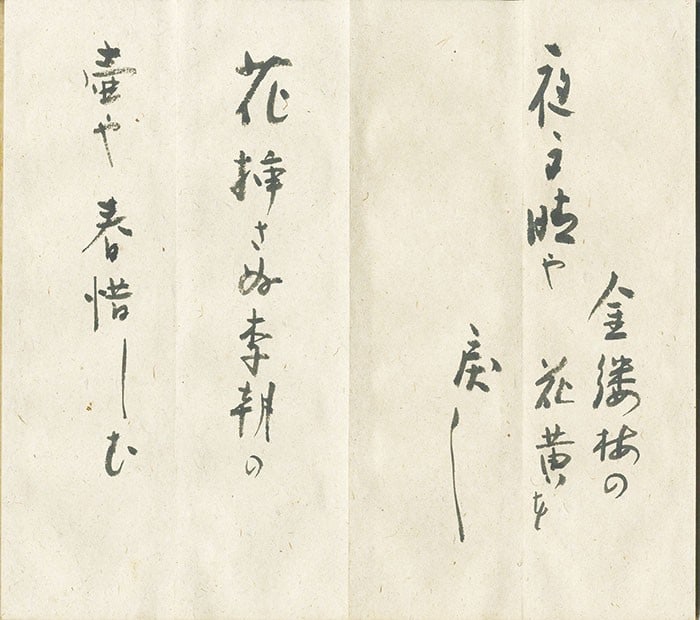 金縷梅の
花黄を
戻し
夜 晴や
花挿さぬ李朝の
壺や春惜しむ